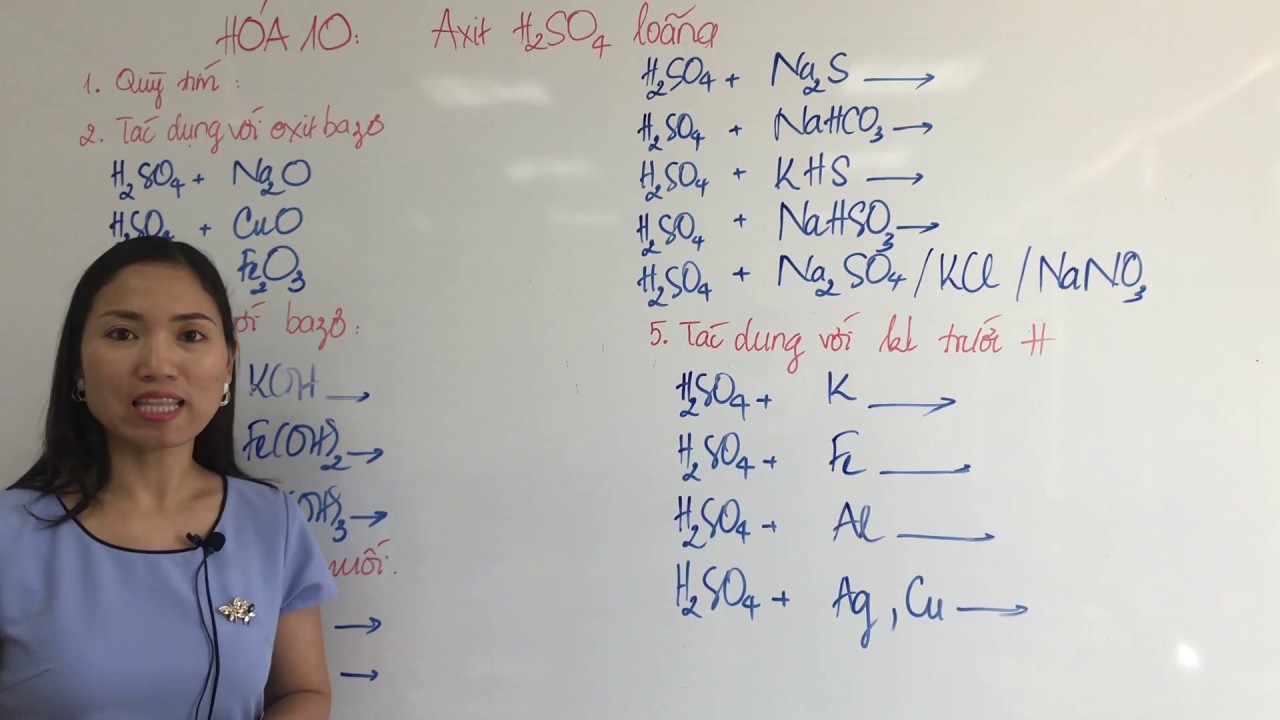 HÓA 10: Axit H₂SO₄ loãng
1. Quỳ tím :
2. Tác dụng với oxit bazơ
H₂SO₄ + Na₂O
H₂SO₄ + CuO
Fe₂O₃
với bazơ:
KOH →
Fe(OH)₂ →
(OH)₃ →
muối:
→
→
H₂SO₄ + Na₂S →
H₂SO₄ + NaHCO₃ →
H₂SO₄ + KHS →
H₂SO₄ + NaHSO₃ →
H₂SO₄ + Na₂SO₄ / KCl / NaNO₃
5. Tác dụng với kl trước H
H₂SO₄ + K →
H₂SO₄ + Fe →
H₂SO₄ + Al →
H₂SO₄ + Ag, Cu →